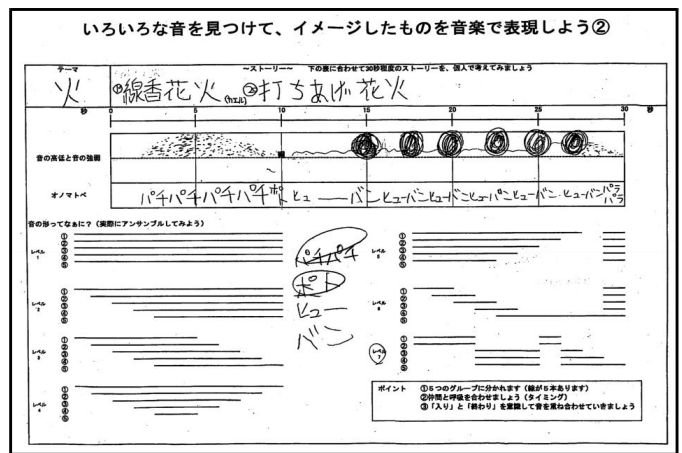 いろいろな音を見つけて、イメージしたものを音楽で表現しよう②
テーマ
~ストーリー~ 下の表に合わせて30秒程度のストーリーを、個人で考えてみましょう
火
線香花火 ②打ちあげ花火
秒 0 5 10 15 20 25 30 秒
音の高低と音の強弱
オノマトペ
パチパチパチパチポト ヒュ――バンヒューバンヒューバンヒューバンヒューバン ヒューバンパラパラ
音の形ってなぁに?(実際にアンサンブルしてみよう)
レベル1 ① ② ③ ④ ⑤
レベル2 ① ② ③ ④ ⑤
レベル3 ① ② ③ ④ ⑤
レベル4 ① ② ③ ④ ⑤
パチパチ
ポト
ヒュー
バン
レベル5 ① ② ③ ④ ⑤
レベル6 ① ② ③ ④ ⑤
レベル7 ① ② ③ ④ ⑤
ポイント ①5つのグループに分かれます(線が5本あります)
②仲間と呼吸を合わせましょう(タイミング)
③「入り」と「終わり」を意識して音を重ね合わせていきましょう